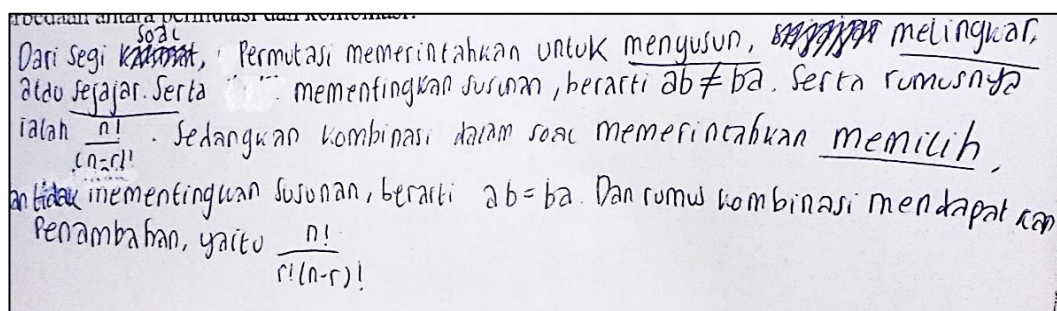 rbedaan antara permutasi dan kombinasi.
soal
Dari segi , Permutasi memerintahkan untuk menyusun, melingkar,
atau sejajar. Serta mementingkan susunan, berarti ab ≠ ba. Serta rumusnya
ialah n!/(n-r)! . Sedangkan kombinasi dalam soal memerintahkan memilih,
an tidak mementingkan susunan, berarti ab = ba. Dan rumus kombinasi mendapatkan
Penambahan, yaitu n!/r!(n-r)!